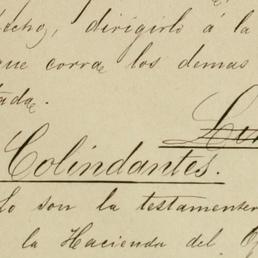 echo, dirigirlo á la
que corrae los demas
Colindantes.
lo son la testamenter
la Hacienda del